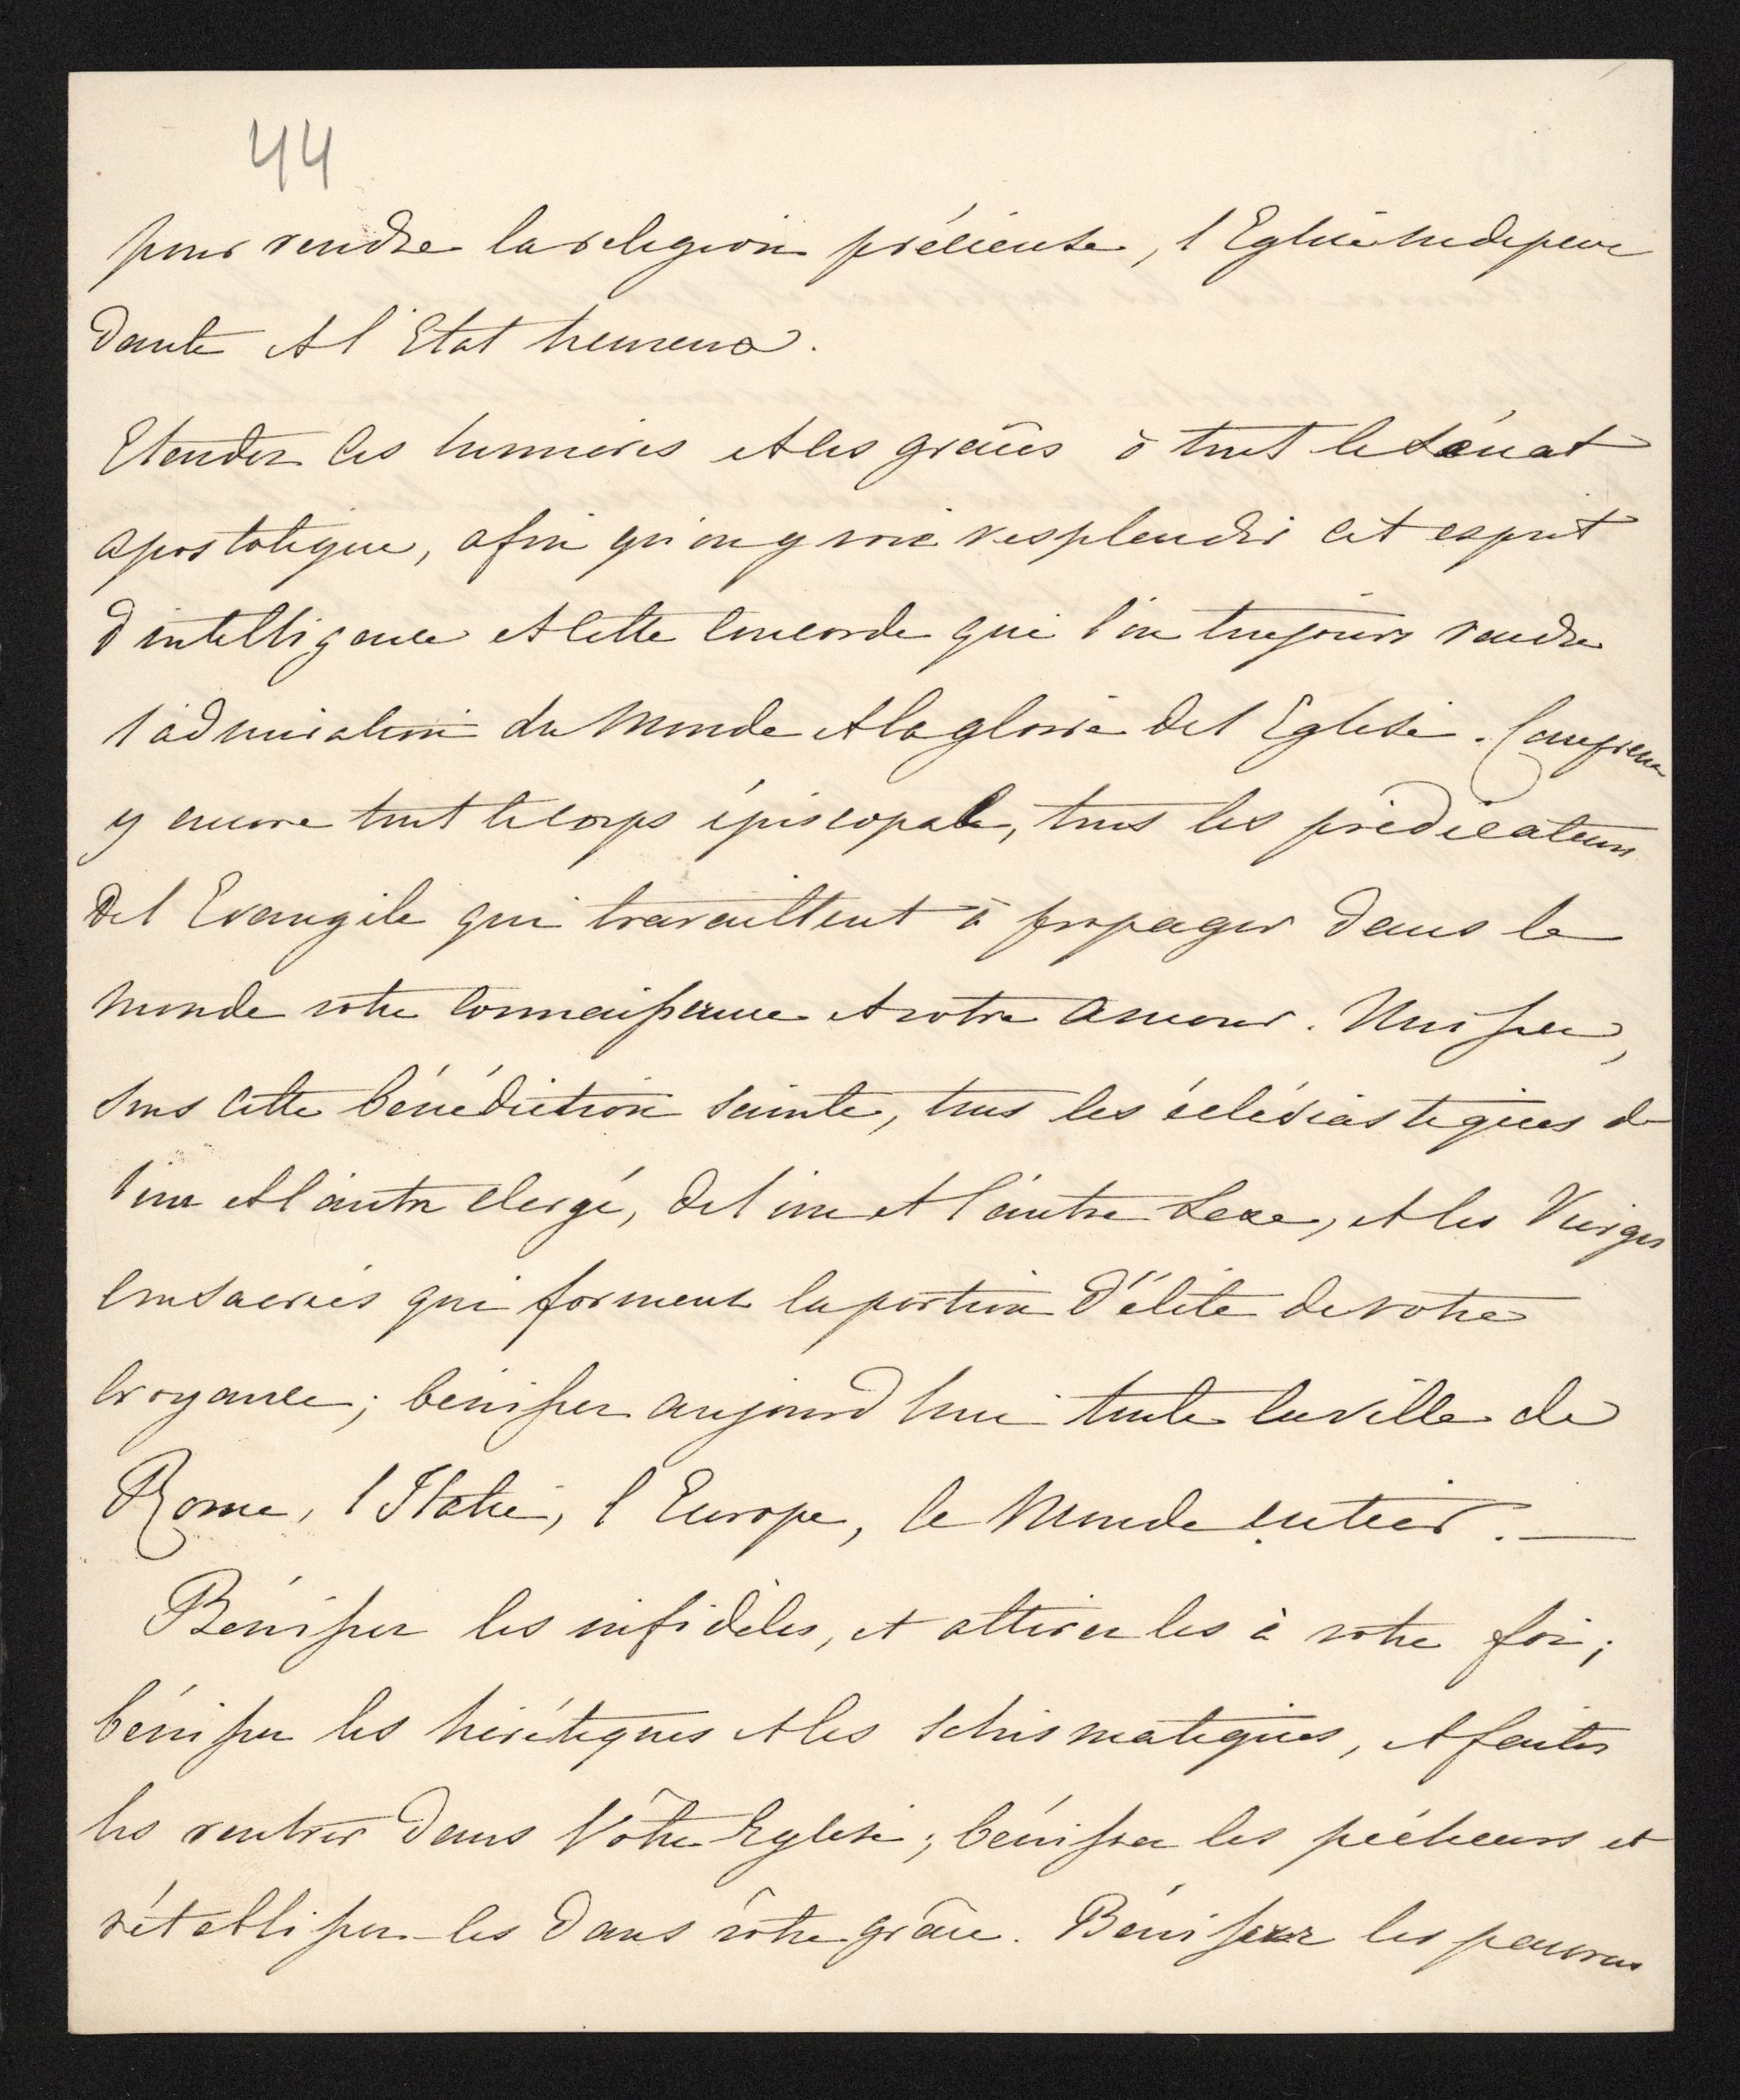 44
pour rendre la religion précieuse, l'Eglise indepen
dante et l'Etat heureux.
Etendez les lumières et les grâces à tout le Sénat
apostolique, afin qu'on y voie resplendir cet esprit
d'intelligence et cette concorde qui l'on toujours rendre
l'admiration du Monde et la gloire del Eglise. Comprenez
y encore tout le corps épiscopale, tous les prédicateurs
del Evangile qui travaillent à propager dans le
Monde votre connaissance et votre amour. Unissez,
sous cette bénédiction sainte, tous les éclésiastiques de
l'un et l'autre clergé, del'un et l'autre Sexe, et les Vierges
consacrées qui forment la portion d'élite de votre
croyance; benissez aujourd'hui toute la ville de
Rome, l'Italie, l'Europe, le Monde entier. —
Bénissez les infidèles, et attirez les à votre foi;
bénissez les hérétiques et les schismatiques, et faites
les rentrer dans Vôtre Eglise; bénissez les pécheurs et
rétablissez-les dans vôtre grâce. Bénissez les pauvres